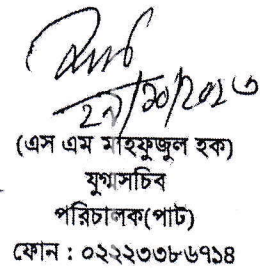 ২৯/১০/২০২৩
(এস এম মাহফুজুল হক)
যুগ্মসচিব
পরিচালক(পাট)
ফোন : ০২২২৩৩৮৬৭১৪